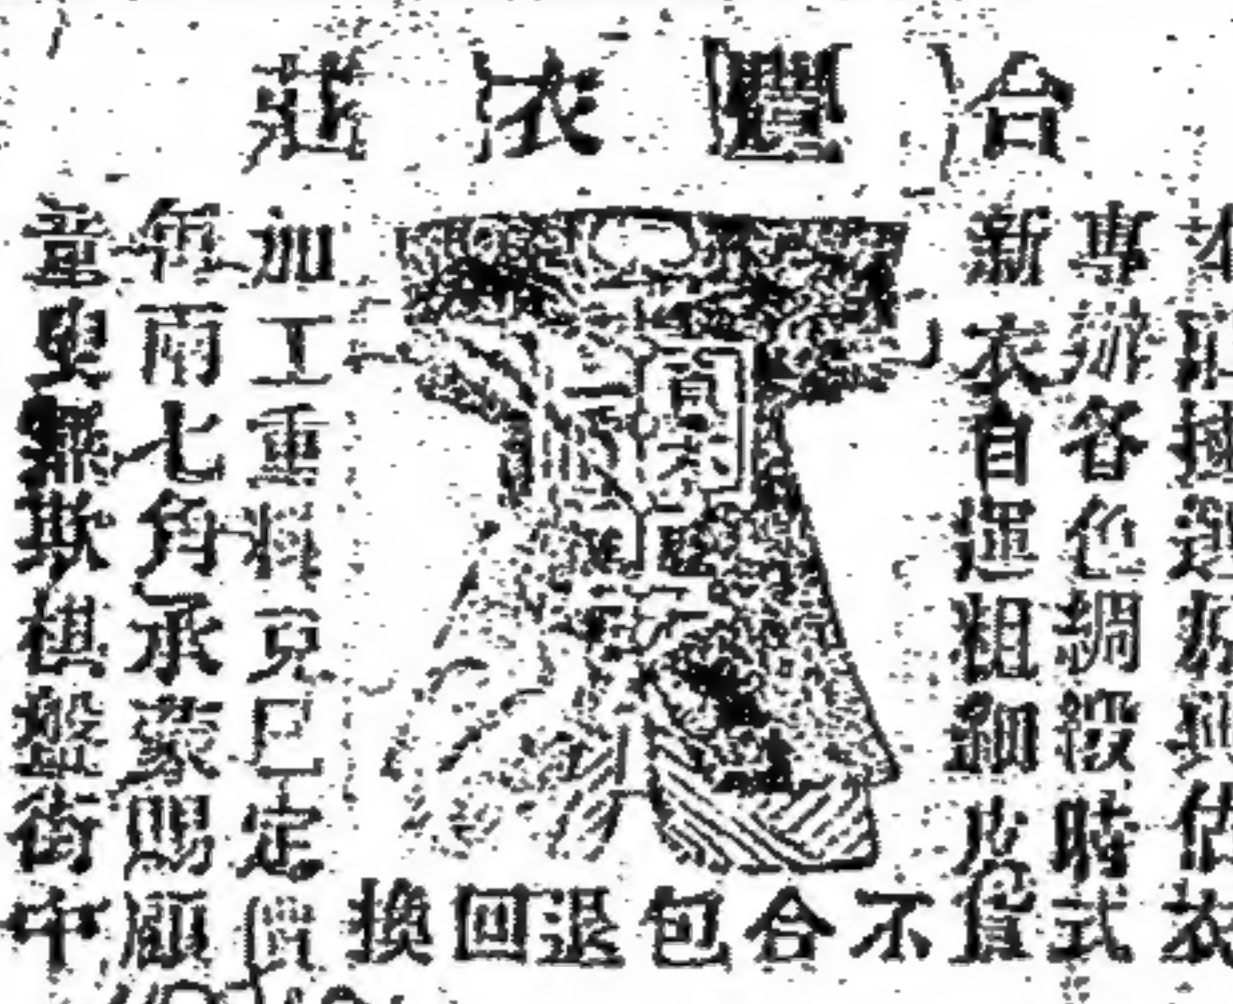 台豐衣莊
選估衣
專辦各色綢緞時式
新衣自運粗細皮貨
不合包退回換
加工重料克己定價
兩七角承蒙賜顧
童叟無欺棋盤街中